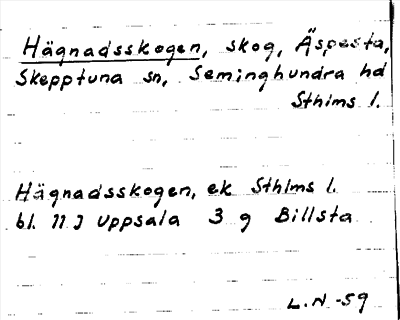 Hägnadsskogen, skog, Äspesta,
Skepptuna sn, Seminghundra hd
Sthlms l.
Hägnadsskogen, ek Sthlms l.
bl. 11 J Uppsala 3 g Billsta
L.N -59